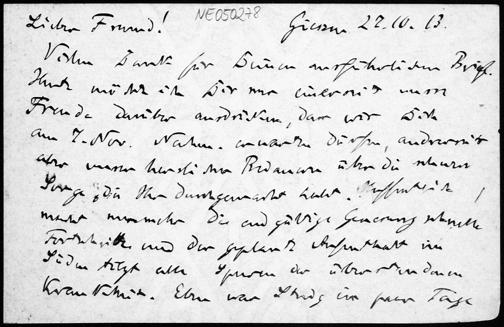 NE050278
Lieber Freund! Giessen 22.10.13.
Vielen Dank für Deinen ausführlichen Brief.
Heute möchte ich Dir nur einerseits unsere
Freude darüber ausdrücken, dass wir Dich
am 7. Nov. Nachm. erwarten dürfen, andrerseits
aber unser herzliches Bedauern über die schwere
Sorge, die Ihr durchgemacht habt. Hoffentlich
macht nunmehr die endgültige Genesung schnelle
Fortschritte und der geplante Aufenthalt im
Süden tilgt alle Spuren der überstandenen
Krankheit. Eben war ein paar Tage